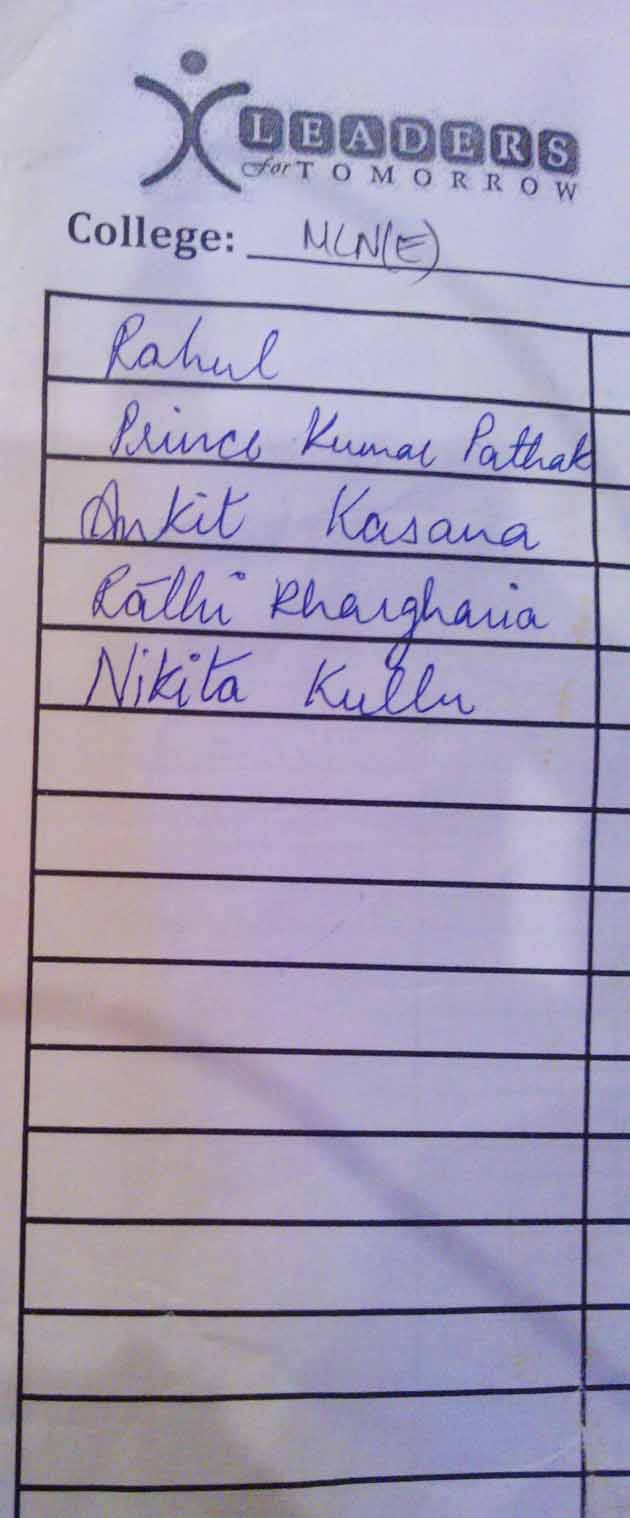 LEADERS
for TOMORROW
College: MLN(E)
Rahul
Prince Kumar Pathak
Ankit Kasana
Nikita Kullu